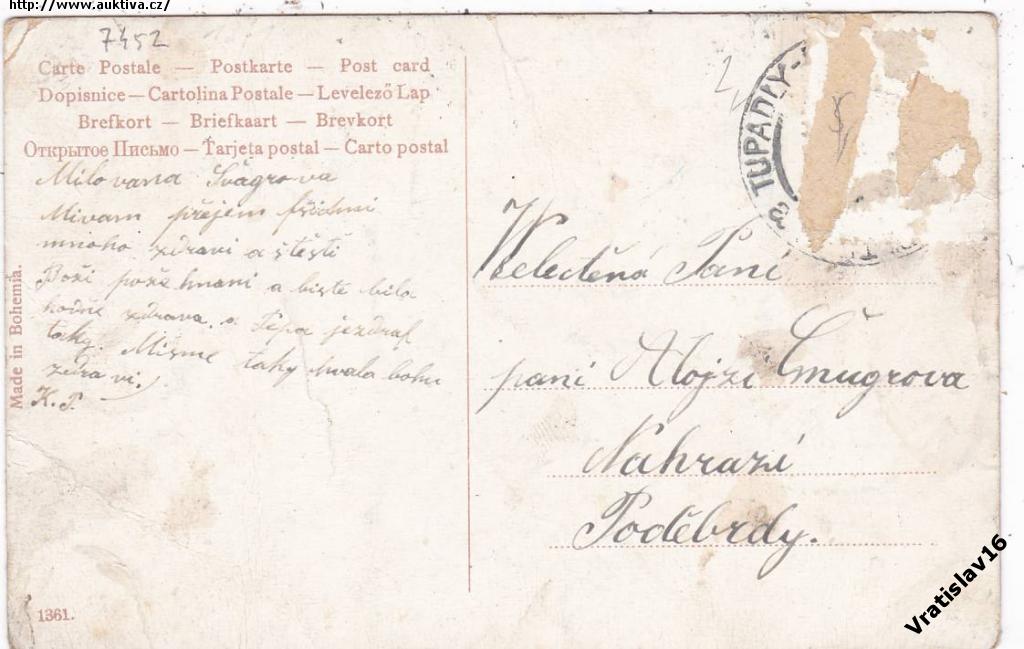 http://www.auktiva.cz/
7452
Carte Postale — Postkarte — Post card
Dopisnice — Cartolina Postale — Levelező Lap
Brefkort — Briefkaart — Brevkort
Открытое Письмо — Tarjeta postal — Carto postal
Milovana Švagrova
Mivam přejem
mnoho zdraví a štěstí
Boží požehnani a biste bila
hodně zdrava a Pepa jezdral
taky. Misme taky hvala bohu
zdravi.
K.P.
Made in Bohemia.
1361.
2
TUPADLY-
Velectěná Paní
paní Alojzi Čmugrova
Nahrazí
Poděbrdy.
Vratislav16